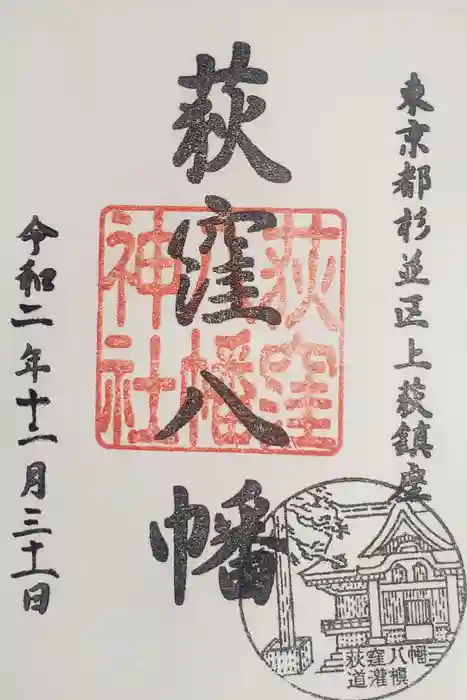 東京都杉並区上荻鎮座
荻窪八幡
荻窪
八幡
神社
令和二年十二月三十一日
荻窪八幡
道灌槙